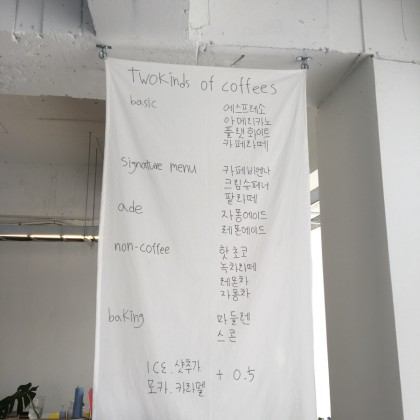 Twokinds of coffees
basic 에스프레소
아메리카노
플랫화이트
카페라떼
signature menu 카페비엔나
크림슈페너
팥라떼
ade 자몽에이드
레몬에이드
non-coffee 핫초코
녹차라떼
레몬차
자몽차
baking 마들렌
스콘
ICE.샷추가 + 0.5
모카.카라멜